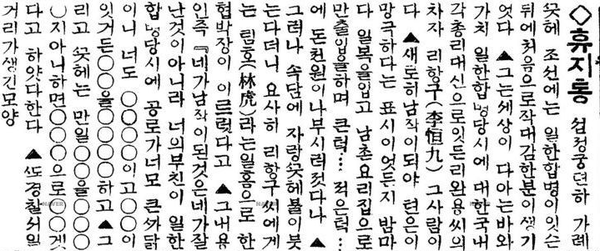 ◇휴지통 섭정중뎐하 가례
끗헤 조선에는 일한합병이잇슨
뒤에처음으로작대감한분이생기
엇다 ▲그는세상이 다아는바와
가치 일한합병당시에 대한국내
각총리대신으로잇든리완용씨의
차자 리항구(李恒九) 그사람이
다 ▲새로히남작이되야 련은이
망극하다는 표시이엇든지 밤마
다 일복을입고 남촌요리집으로
만출입을하며 큰턱… 적은턱…
에 돈천원이나부시러젓다나 ▲
그러나 속담에 자랑끗헤불이붓
는다더니 요사히 리항구씨에게
는 림호(林虎)라는일홈으로 한
협박장이 이르럿다고 ▲그내용
인즉 『네가남작이된것은네가잘
난것이아니라 너의부친이 일한
합병당시에 공로가너모 큰까닭
이니 너도 ○○○○이고○○이
잇거든○○을○○○○하고 ▲그
리고 끗헤는 만일○○을○○○
○지아니하면○○○으로○○겟
다고 하얏다한다 ▲또경찰서일
거리가생긴모양